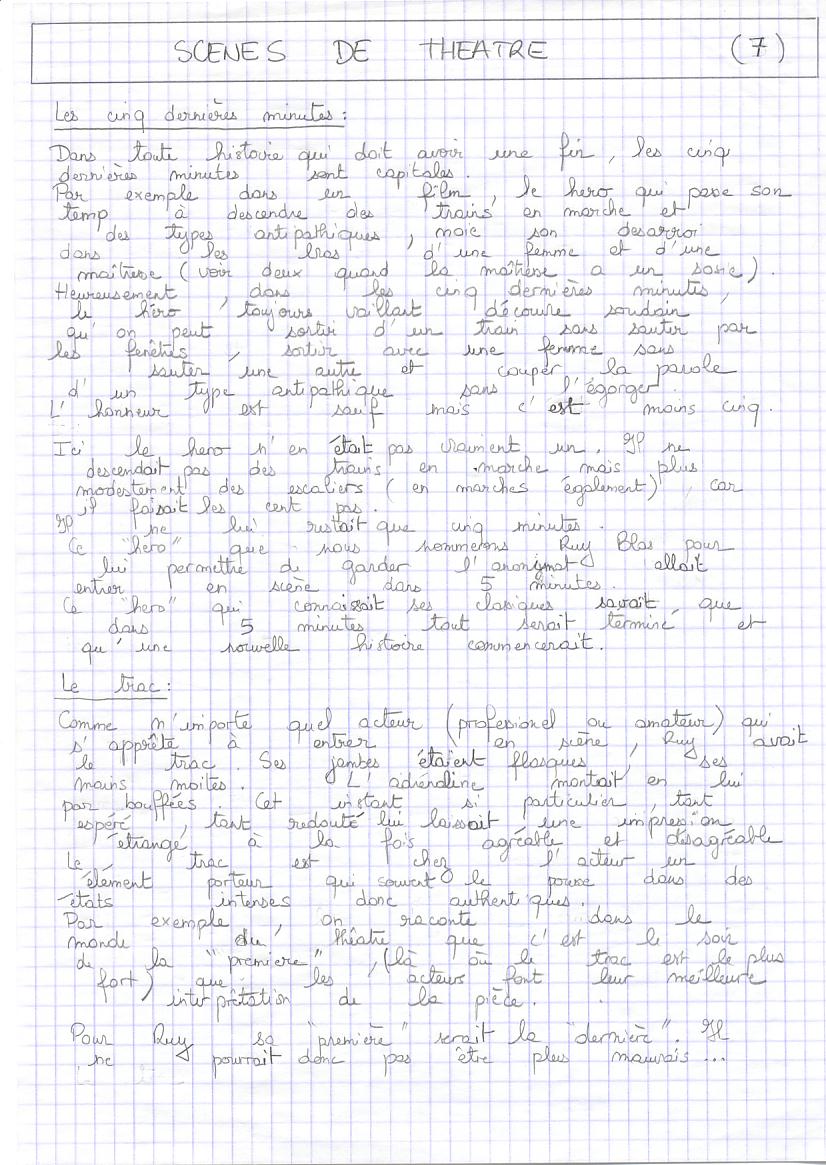 SCENES DE THEATRE (7)
Les cinq dernières minutes :
Dans toute histoire qui doit avoir une fin, les cinq
dernières minutes sont capitales.
Par exemple dans un film, le hero qui passe son
temp à descendre des trains en marche et
des types antipathiques, noie son desarroi
dans les bras d'une femme et d'une
maîtresse (voir deux quand la maîtresse a un sosie).
Heureusement, dans les cinq dernières minutes,
le héro, toujours vaillant découvre soudain
qu'on peut sortir d'un train sans sauter par
les fenêtres, sortir avec une femme sans
sauter une autre et couper la parole
d'un type antipathique sans l'égorger.
L'honneur est sauf mais c'est moins cinq.
Ici le hero n'en était pas vraiment un. Il ne
descendait pas des trains en marche mais plus
modestement des escaliers (en marches également), car
il faisait les cent pas.
Il ne lui restait que cinq minutes.
Ce "hero" que nous nommerons Ruy Blas pour
lui permettre de garder l'anonymat allait
entrer en scène dans 5 minutes.
Ce "hero" qui connaissait ses classiques savait que
dans 5 minutes tout serait terminé et
qu'une nouvelle histoire commencerait.
Le trac :
Comme n'importe quel acteur (profesionel ou amateur) qui
s'apprête à entrer en scène, Ruy avait
le trac. Ses jambes étaient flasques, ses
mains moites. L'adrénaline montait en lui
par bouffées. Cet instant si particulier, tant
espéré, tant redouté lui laissait une impression
étrange à la fois agréable et désagréable
Le trac est chez l'acteur un
élément porteur qui souvent le pousse dans des
états intenses donc authentiques.
Par exemple, on raconte dans le
monde du théâtre que c'est le soir
de la "première", (là où le trac est le plus
fort) que les acteurs font leur meilleure
interprêtation de la pièce.
Pour Ruy sa "première" serait la "dernière". Il
ne pourrait donc pas être plus mauvais ...